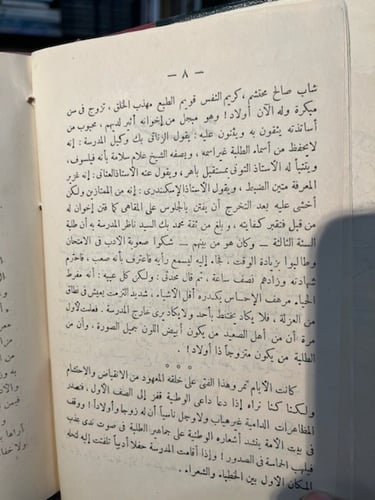 — ٨ —
شاب صالح محتشم، كريم النفس قويم الطبع مهذب الخلق، تزوج فى سن
مبكرة وله الآن أولاد! وهو مبجل من إخوانه أثير لديهم، محبوب من
أساتذته يثقون به ويثنون عليه: يقول الزناتى بك وكيل المدرسة: إنه
لايحفظ من أسماء الطلبة غير اسمه، ويصفه الشيخ علام سلامة بأنه فيلسوف،
ويتنبأ له الاستاذ التونى مستقبل باهر، ويقول عنه الاستاذ العنانى: إنه غزير
المعرفة متين الضبط، ويقول الاستاذ الاسكندرى: إنه من الممتازين ولكن
أخشى عليه بعد التخرج أن يفتن بالجلوس على المقاهى كما فتن إخوان له
من قبل فتقبر كفايته، وبلغ من ثقة محمد بك السيد ناظر المدرسة به أن طلبة
السنة الثالثة — وكان هو من بينهم — شكوا صعوبة الأدب فى الامتحان
وطالبوا بزيادة الوقت، فجاء إليه ليسمع رأيه فاعترف بأنه صعب، فاحترم
شهادته وزادهم نصف ساعة، ثم قال محدثى: ولكن كل عيبه: أنه مفرط
الحياء مرهف الإحساس يكدره أقل الأشياء، شديد التزمت يعيش فى نطاق
من العزلة، فلا يكاد يختلط بأحد ولا يكاد يرى خارج المدرسة. فعلمت لأول
مرة أن من أهل الصعيد من يكون أبيض اللون جميل الصورة، وأن من
الطلبة من يكون متزوجاً ذا أولاد!.
* * *
كانت الأيام تمر وهذا الفتى على خلقه المعهود من الانقباض والاحتشام
ولكنا كنا نراه إذا دعا داعى الوطنية قفز إلى الصف الأول، فتصدر
المظاهرات الدامية غير هياب ولا وجل ناسياً أن له زوجا وأولاداً! ووقف
فى بيت الامة ينشد أشعاره الوطنية على جماهير الطلبة فى صوت ندى عذب
فيلهب الحماسة فى الصدور! وإذا أقامت المدرسة حفلا أدبياً تلفتت إليه لتحله
المكان الاول بين الخطباء والشعراء.